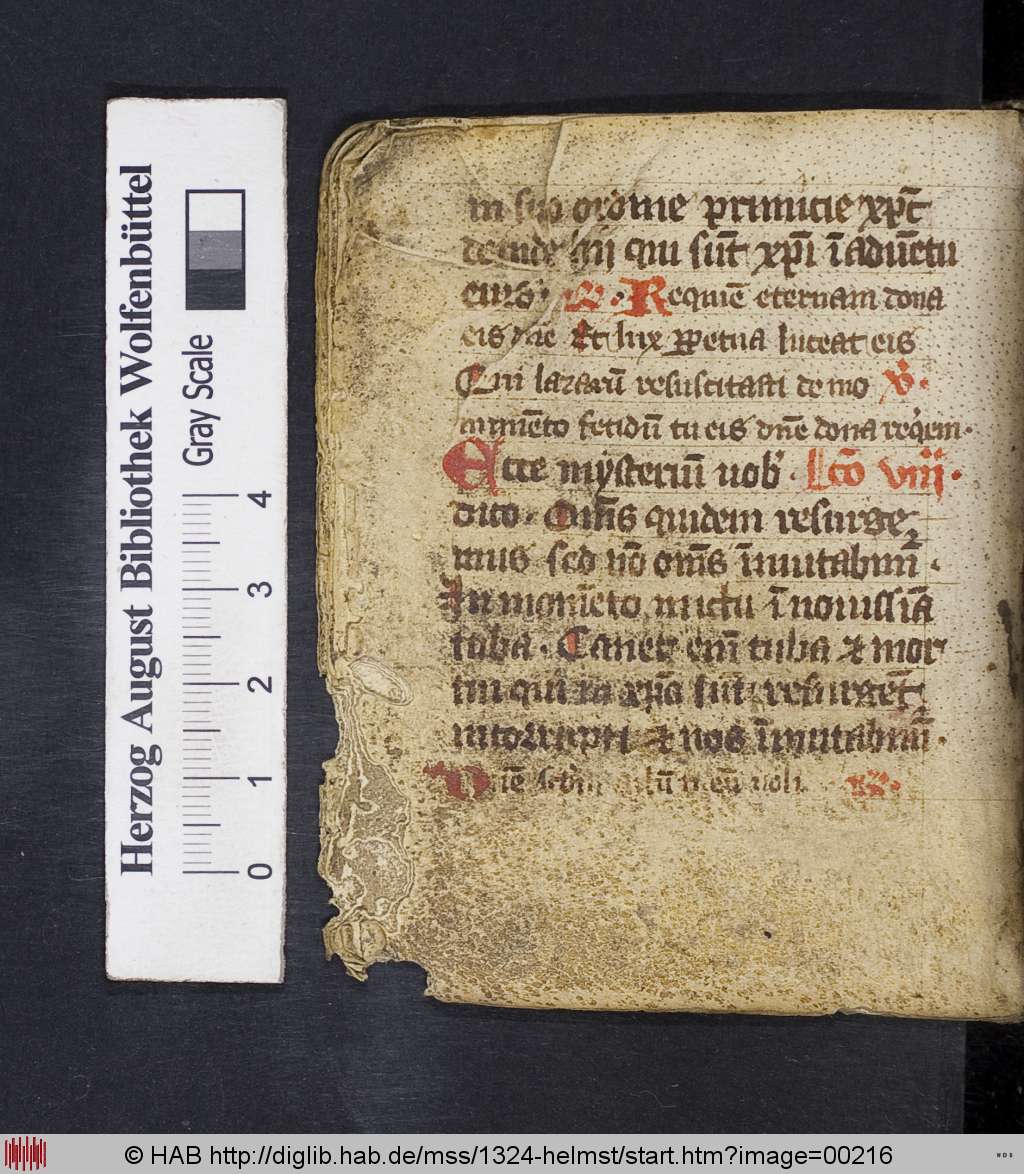 Herzog August Bibliothek Wolfenbüttel
Gray Scale
0 1 2 3 4
in suo ordine primicie xp̄c
deinde hij qui sūt xp̄i ī aduētu
eius · R · Requiē eternam dona
eis dn̄e Et lux ꝑpetua luceat eis
Qui lazarū resuscitasti de mo v̄ ·
numēto fetidū tu eis dn̄e dona reqͥem ·
Ecce mysteriū uob̄ · Lc̄o viij ·
dico · Om̄s quidem resurge
mus sed nō om̄s īmutabim᷒ ·
In momēto in ictu ī nouissīa
tuba · Canet em̄ tuba ⁊ mor
tui qui in xp̄o sūt resurgēt
incorrupti ⁊ nos īmutabim᷒ ·
Dn̄e meū noli R ·
© HAB http://diglib.hab.de/mss/1324-helmst/start.htm?image=00216